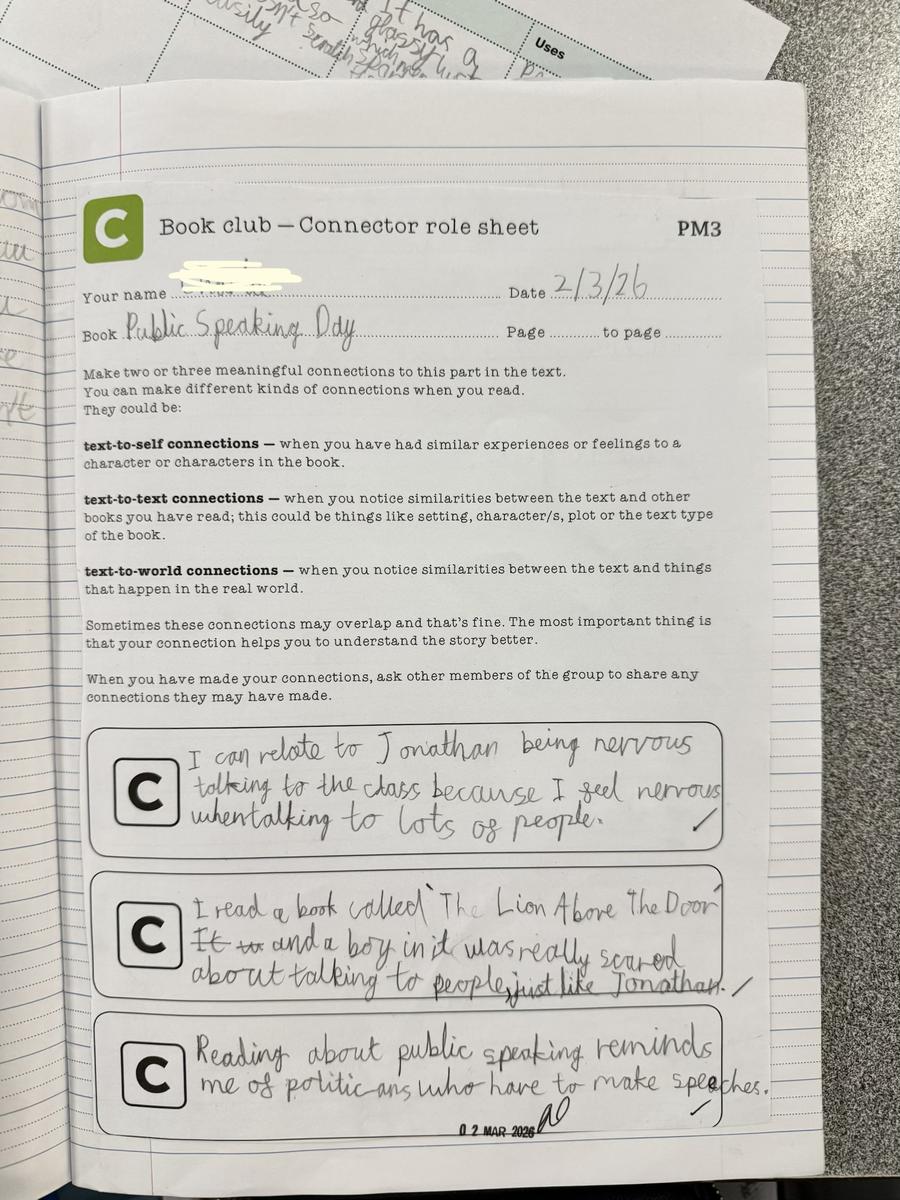 so
It has a
easily
glassy
which
Uses
C
Book club — Connector role sheet
PM3
Your name
Date 2/3/26
Book Public Speaking Day
Page to page
Make two or three meaningful connections to this part in the text.
You can make different kinds of connections when you read.
They could be:
text-to-self connections — when you have had similar experiences or feelings to a
character or characters in the book.
text-to-text connections — when you notice similarities between the text and other
books you have read; this could be things like setting, character/s, plot or the text type
of the book.
text-to-world connections — when you notice similarities between the text and things
that happen in the real world.
Sometimes these connections may overlap and that's fine. The most important thing is
that your connection helps you to understand the story better.
When you have made your connections, ask other members of the group to share any
connections they may have made.
C
I can relate to Jonathan being nervous
talking to the class because I feel nervous
when talking to lots of people.
C
I read a book called 'The Lion Above The Door'
It and a boy in it was really scared
about talking to people, just like Jonathan.
C
Reading about public speaking reminds
me of politicans who have to make speeches.
02 MAR 2026